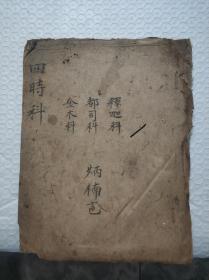 釋迦科
都司科
金木科
四時科
炳楠邑